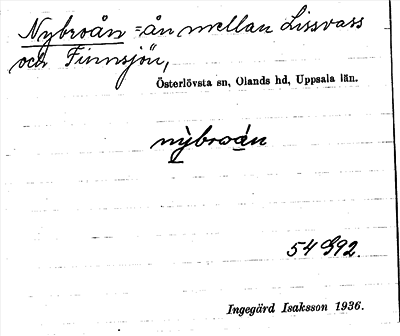 Nybroån = ån mellan Lissvass
och Finnsjön,
Österlövsta sn, Olands hd, Uppsala län.
nỳbroán
54 G92.
Ingegärd Isaksson 1936.